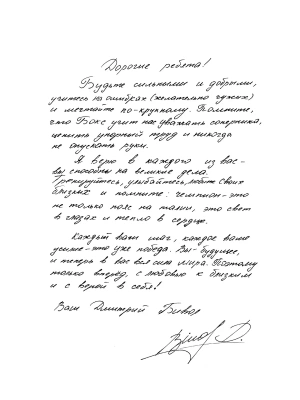 Дорогие ребята!
Будьте сильными и добрыми,
учитесь на ошибках (желательно чужих)
и мечтайте по-крупному. Помните,
что Бокс учит нас уважать соперника,
ценить упорный труд и никогда
не опускать руки.
Я верю в каждого из вас-
вы способны на великие дела.
Тренируйтесь, улыбайтесь, любите своих
близких и помните: чемпион-это
не только пояс на талии, это свет
в глазах и тепло в сердце.
Каждый ваш шаг, каждое ваше
усилие-это уже победа. Вы-будущее,
и теперь в вас вся сила мира. Поэтому
только вперед, с любовью к близким
и с верой в себя!
Ваш Дмитрий Бивол